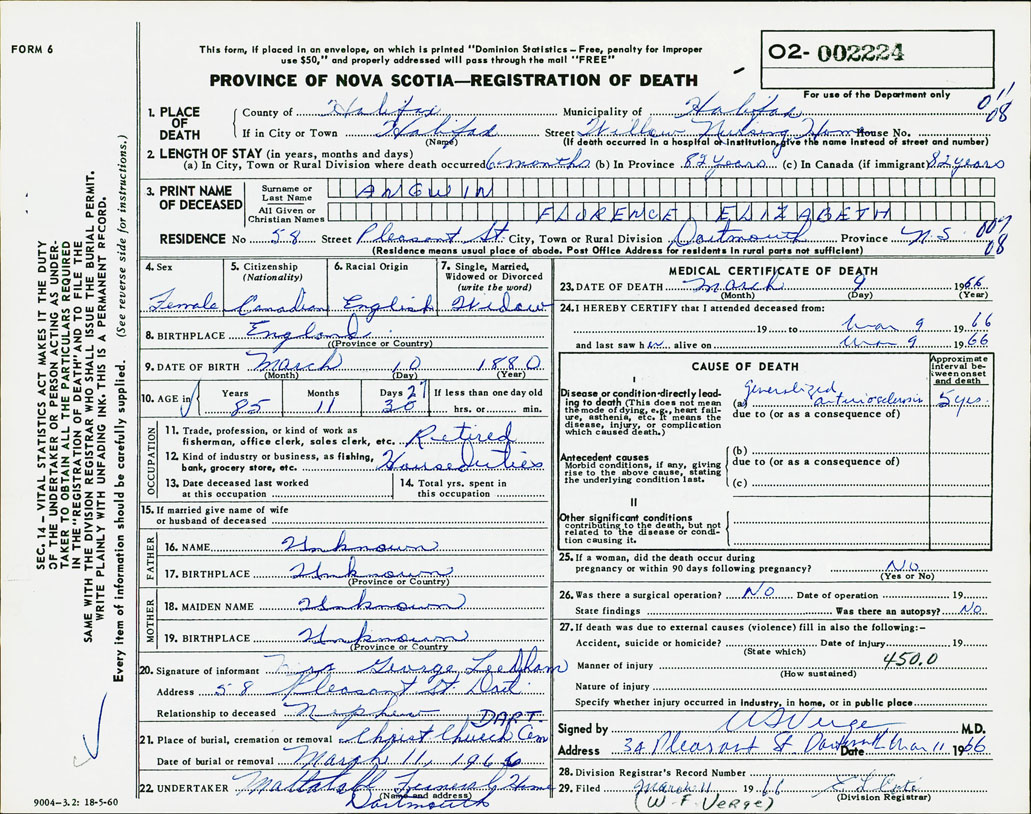 FORM 6
This form, if placed in an envelope, on which is printed "Dominion Statistics – Free, penalty for improper
use $50," and properly addressed will pass through the mail "FREE"
PROVINCE OF NOVA SCOTIA—REGISTRATION OF DEATH
02- 002224
For use of the Department only
011
08
1. PLACE OF DEATH
County of Halifax Municipality of Halifax
If in City or Town Halifax Street Willow Nursing Home House No.
(Name) (If death occurred in a hospital or institution, give the name instead of street and number)
2. LENGTH OF STAY (in years, months and days)
(a) In City, Town or Rural Division where death occurred 6 months (b) In Province 82 years (c) In Canada (if immigrant) 82 years
3. PRINT NAME OF DECEASED
Surname or Last Name ANGWIN
All Given or Christian Names FLORENCE ELIZABETH
007
08
RESIDENCE No 58 Street Pleasant St. City, Town or Rural Division Dartmouth Province N.S.
(Residence means usual place of abode. Post Office Address for residents in rural parts not sufficient)
4. Sex Female
5. Citizenship (Nationality) Canadian
6. Racial Origin English
7. Single, Married, Widowed or Divorced (write the word) Widow
8. BIRTHPLACE England
(Province or Country)
9. DATE OF BIRTH March 10 1880
(Month) (Day) (Year)
10. AGE in Years 85 Months 11 Days 27 30 If less than one day old hrs. or min.
OCCUPATION
11. Trade, profession, or kind of work as fisherman, office clerk, sales clerk, etc. Retired
12. Kind of industry or business, as fishing, bank, grocery store, etc. Houseduties
13. Date deceased last worked at this occupation
14. Total yrs. spent in this occupation
15. If married give name of wife or husband of deceased
FATHER
16. NAME Unknown
17. BIRTHPLACE Unknown
(Province or Country)
MOTHER
18. MAIDEN NAME Unknown
19. BIRTHPLACE Unknown
(Province or Country
20. Signature of informant George Leedham
Address 58 Pleasant St. Dart
Relationship to deceased Nephew
DART.
21. Place of burial, cremation or removal Christ Church Cem
Date of burial or removal March 11, 1966
22. UNDERTAKER Mattatall Funeral Home
(Name and address)
Dartmouth
MEDICAL CERTIFICATE OF DEATH
23. DATE OF DEATH March 9 1966
(Month) (Day) (Year)
24. I HEREBY CERTIFY that I attended deceased from:
19 to Mar 9 1966
and last saw her alive on Mar 9 1966
CAUSE OF DEATH
Approximate interval between onset and death
I
Disease or condition directly leading to death (This does not mean the mode of dying, e.g., heart failure, asthenia, etc. It means the disease, injury, or complication which caused death.)
(a) generalized arteriosclerosis 5 yrs.
due to (or as a consequence of)
Antecedent causes
Morbid conditions, if any, giving rise to the above cause, stating the underlying condition last.
(b)
due to (or as a consequence of)
(c)
II
Other significant conditions
contributing to the death, but not related to the disease or condition causing it.
25. If a woman, did the death occur during pregnancy or within 90 days following pregnancy? No
(Yes or No)
26. Was there a surgical operation? No Date of operation 19
State findings Was there an autopsy? No
27. If death was due to external causes (violence) fill in also the following:–
Accident, suicide or homicide? Date of injury 19
(State which)
Manner of injury 450.0
(How sustained)
Nature of injury
Specify whether injury occurred in industry, in home, or in public place
Signed by W F Verge M.D.
Address 34 Pleasant St Dartmouth Date Mar 11 1966
28. Division Registrar's Record Number
29. Filed March 11 1966
(Division Registrar)
(W. F. VERGE)
SEC. 14 – VITAL STATISTICS ACT MAKES IT THE DUTY
OF THE UNDERTAKER OR PERSON ACTING AS UNDER-
TAKER TO OBTAIN ALL THE PARTICULARS REQUIRED
IN THE "REGISTRATION OF DEATH" AND TO FILE THE
SAME WITH THE DIVISION REGISTRAR WHO SHALL ISSUE THE BURIAL PERMIT.
WRITE PLAINLY WITH UNFADING INK. THIS IS A PERMANENT RECORD.
Every item of information should be carefully supplied. (See reverse side for instructions.)
9004–3.2: 18-5-60